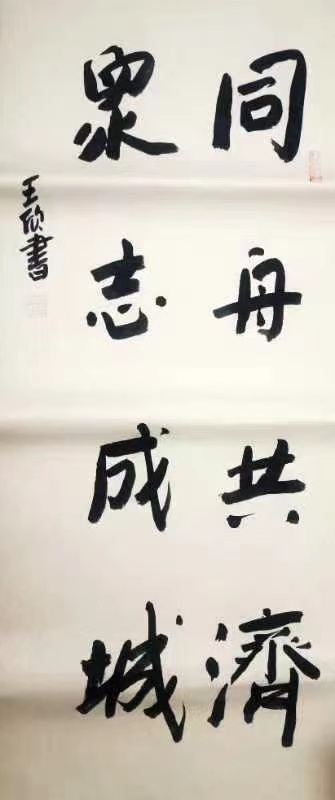 同舟共濟
眾志成城
王欣書